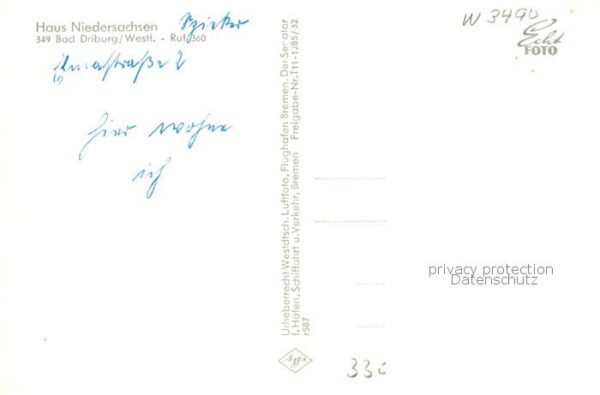 Haus Niedersachsen Spieker
349 Bad Driburg/Westf. - Ruf 360
hier wohne
ich
Urheberrecht Westdtsch. Luftfoto, Flughafen Bremen. Der Senator
f. Häfen, Schiffahrt u. Verkehr, Bremen Freigabe-Nr. T11-1285/32
r587
W 3490
Echt
FOTO
privacy protection
Datenschutz